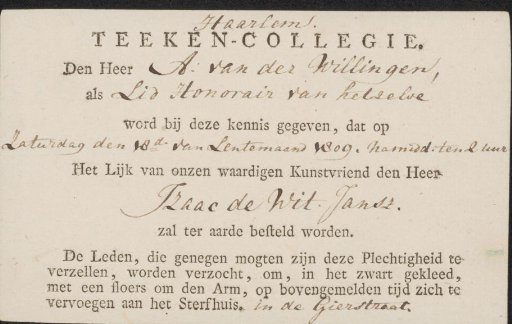 Haarlem.
TEEKEN-COLLEGIE.
Den Heer A. van der Willingen,
als Lid Honorair van hetselve
word bij deze kennis gegeven, dat op
Zaturdag den 18de van Lentemaand 1809. namidd: ten 2 uur
Het Lijk van onzen waardigen Kunstvriend den Heer
Izaac de Wit Jansz.
zal ter aarde besteld worden.
De Leden, die genegen mogten zijn deze Plechtigheid te
verzellen, worden verzocht, om, in het zwart gekleed,
met een floers om den Arm, op bovengemelden tijd zich te
vervoegen aan het Sterfhuis. in de Gierstraat.